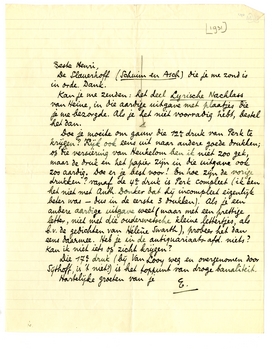 [1931]
Beste Henri,
De Slauerhoff (Schuim en Asch) die je me zond is
in orde. Dank.
Kan je me zenden: het deel Lyrische Nachlass
van Heine, in die aardige uitgave met plaatjes die
je me bezorgde. Als je het niet voorradig hebt, bestel
het dan.
Doe je moeite om gauw die 12e druk van Perk te
krijgen? Kijk ook eens uit naar andere goede drukken;
os die versiering van Heukelom ben ik niet zoo gek,
maar de druk en het papier zijn in die uitgave ook
zoo aardig. Doe er je best voor! En hoe zijn de vorige
drukken? Vanaf de 4e druk is Perk compleet (ik ben
het niet met Anth. Donker dat hij incompleet eigenlijk
beter was – dus in de eerste 3 drukken). Als je een
andere aardige uitgave weet (maar met een prettige
letter, niet met die ouderwetsche kleine lettertjes, als
b.v. de gedichten van Hélène Swarth), probeer het dan
eens daarmee. Heb je in de antiquariaat-afd. niets?
Kan ik niet iets op zicht krijgen?
Die 17e druk (bij Van Looy weg en overgenomen door
Sijthoff, is 't niet?) is het toppunt van droge banaliteit.
Hartelijke groeten van je
E.